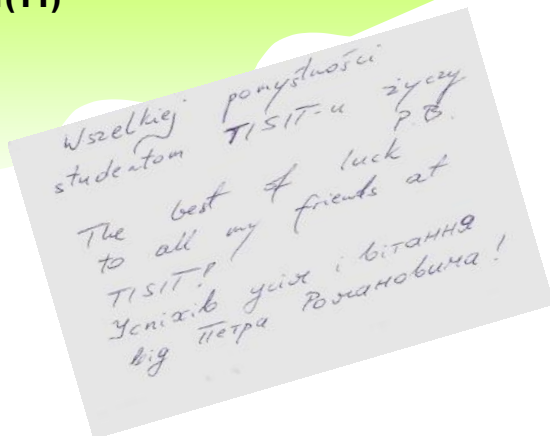 Wszelkiej pomyślności
studentom TISIT-u życzy
P.B.
The best of luck
to all my friends at
TISIT!
Успіхів усім і вітання
від Петра Романовича!